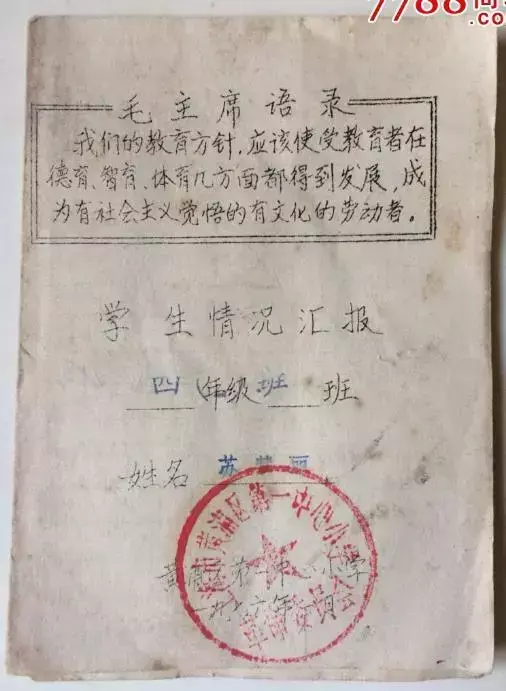 7788
毛主席语录
我们的教育方针，应该使受教育者在
德育、智育、体育几方面都得到发展，成
为有社会主义觉悟的有文化的劳动者。
学生情况汇报
四年级班 班
姓名 苏 丽
黄浦区第一中心小学
革命委员会
一九七六年 月